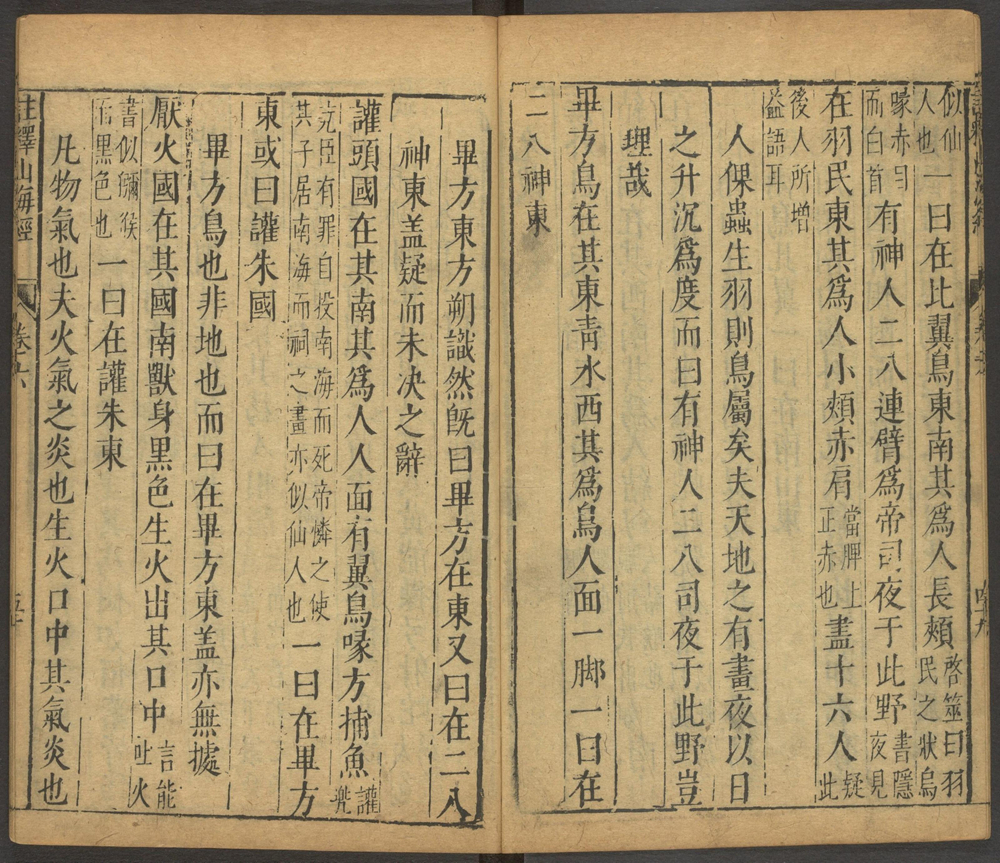 似仙人也一曰在比翼鳥東南其爲人長頰啓筮曰羽民之狀烏
喙赤目而白首有神人二八連臂爲帝司夜于此野書隱夜見
在羽民東其爲人小頰赤肩當胛上正赤也盡十六人疑此
後人所增益語耳
人倮蟲生羽則鳥屬矣夫天地之有晝夜以日
之升沉爲度而曰有神人二八司夜于此野豈
理哉
畢方鳥在其東靑水西其爲鳥人面一脚一曰在
二八神東
畢方東方朔識然旣曰畢方在東又曰在二八
神東盖疑而未决之辭
讙頭國在其南其爲人人面有翼鳥喙方捕魚讙兜
堯臣有罪自投南海而死帝憐之使其子居南海而祠之畫亦似仙人也一曰在畢方
東或曰讙朱國
畢方鳥也非地也而曰在畢方東盖亦無據
厭火國在其國南獸身黑色生火出其口中言能吐火
書似獼猴而黑色也一曰在讙朱東
凡物氣也夫火氣之炎也生火口中其氣炎也
註釋山海經
卷六